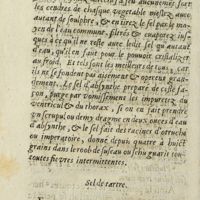 les cendres de chasque vegetable meslez auec
autant de soulphre, & en tirez le sel par le mo-
yen de l'eau commune, filtrés & euaporez ius-
ques à ce qu'il ne reste auec ledit sel qu'autant
d'eau, qu'il en faut pour le pouuoir cristalizer
au froid. Et tels sont les meilleurs de tous, car
ils ne se fondent pas aisement & operent gran-
dement. Le sel d'absynthe preparé de ceste fa-
çon, purge par vomissement les impuretez du
ventricul & du thorax, si on en fait prendre
vn scrupul ou demy dragme en deux onces d'eau
d'absynthe, & le sel fait des racines d'ostruchi
ou imperatoire, donné depuis quatre à huict
grains dans le roob de suseau ou sebu guarit tou-
toutes fieures intermittentes.
Sel de tartre.